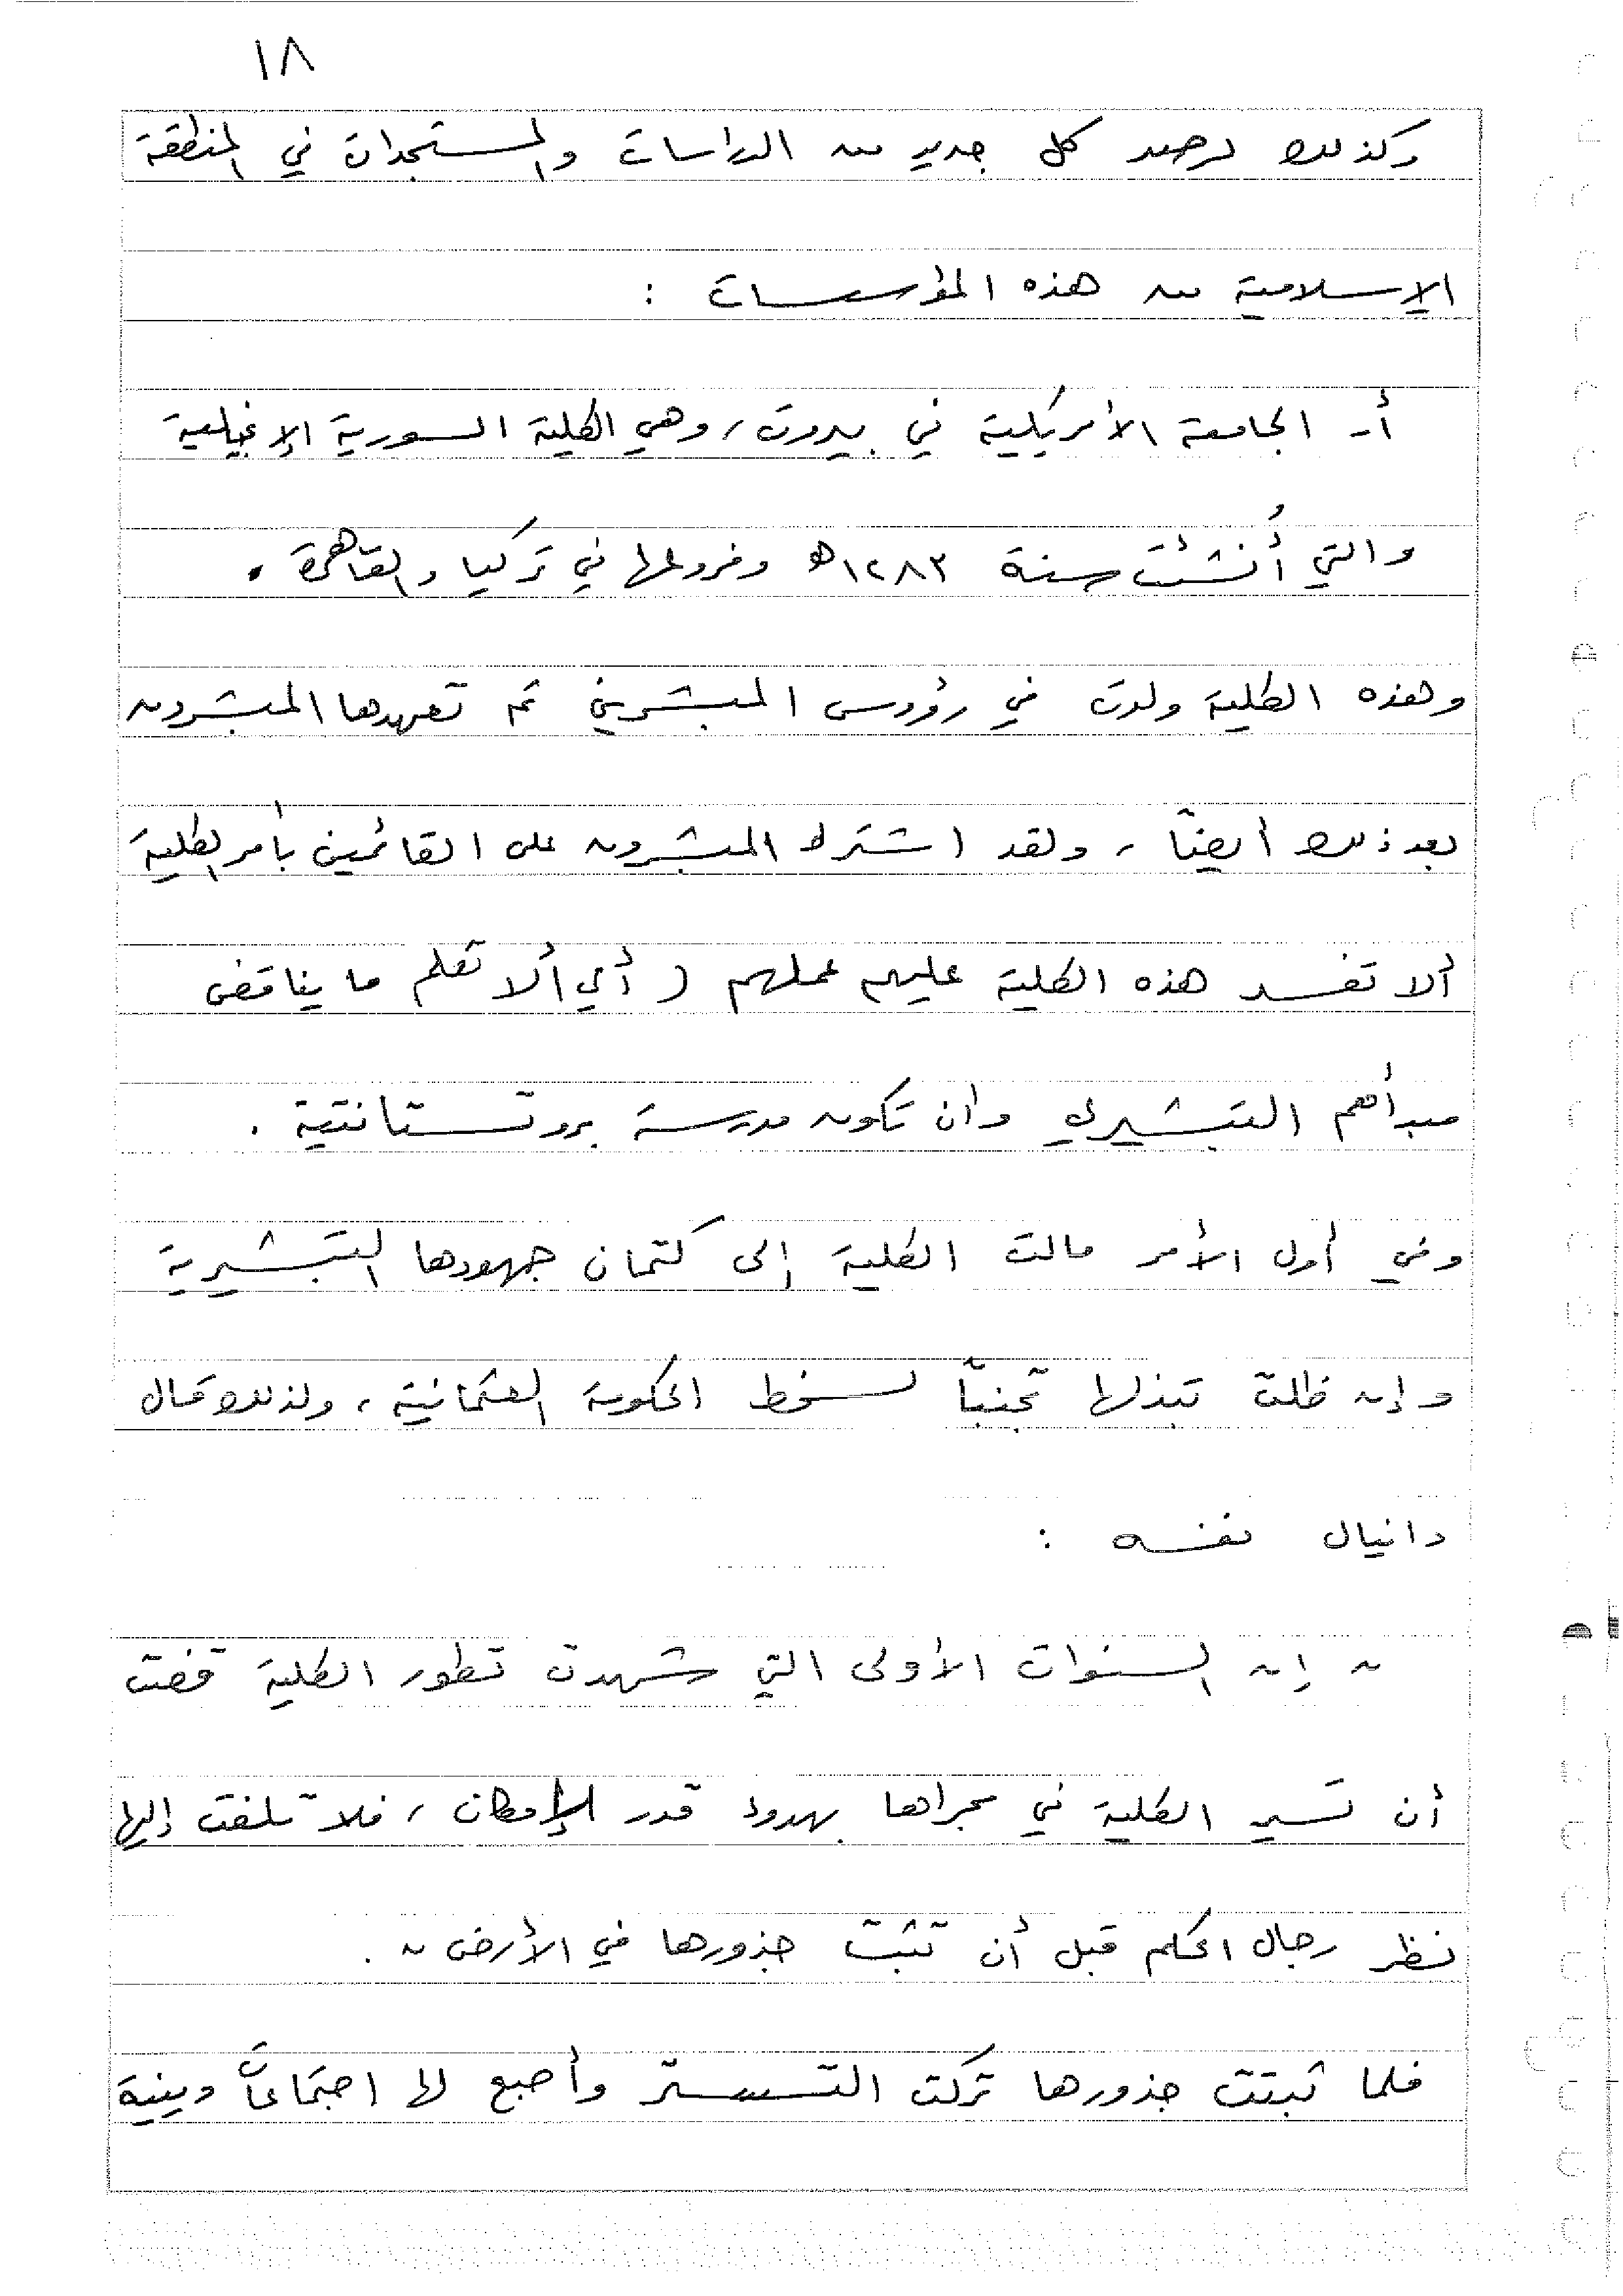 ١٨
وكذلك لرصد كل جديد من الدراسات والمستجدات في المنطقة
الإسلامية من هذه المؤسسات :
أ- الجامعة الأمريكية في بيروت، وهي الكلية السورية الإنجيلية
والتي أُنشئت سنة ١٢٨٣هـ وفروعها في تركيا والقاهرة .
وهذه الكلية ولدت في رؤوس المبشرين ثم تعهدها المبشرون
بعد ذلك أيضاً، ولقد اشترك المبشرون على القائمين بأمر الكلية
ألا تفسد هذه الكلية عليهم عملهم ( أي ألا تعلم ما يناقض
مبدأهم التبشيري وأن تكون مدرسة بروتستانتية .
وفي أول الأمر مالت الكلية إلى كتمان جهودها التبشيرية
وإن ظلت تبذلها تجنباً لسخط الحكومة العثمانية، ولذلك قال
دانيال نفسه :
" إن السنوات الأولى التي شهدت تطور الكلية قضت
أن تسير الكلية في مجراها بهدوء قدر الإمكان، فلا تلفت إليها
نظر رجال الحكم قبل أن تثبت جذورها في الأرض " .
فلما ثبتت جذورها تركت التستر وأصبح لها اجتماعاً دينية